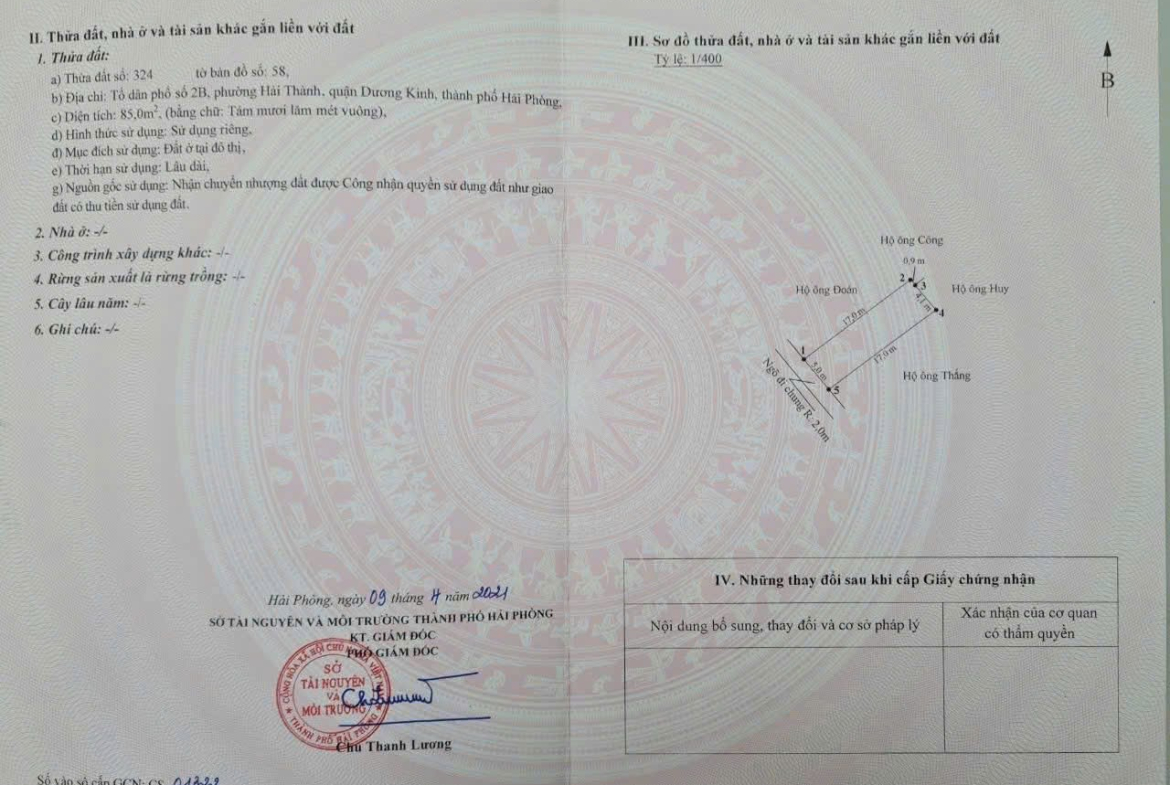 II. Thửa đất, nhà ở và tài sản khác gắn liền với đất
1. Thửa đất:
a) Thửa đất số: 324 tờ bản đồ số: 58,
b) Địa chỉ: Tổ dân phố số 2B, phường Hải Thành, quận Dương Kinh, thành phố Hải Phòng,
c) Diện tích: 85,0m², (bằng chữ: Tám mươi lăm mét vuông),
d) Hình thức sử dụng: Sử dụng riêng,
đ) Mục đích sử dụng: Đất ở tại đô thị,
e) Thời hạn sử dụng: Lâu dài,
g) Nguồn gốc sử dụng: Nhận chuyển nhượng đất được Công nhận quyền sử dụng đất như giao
đất có thu tiền sử dụng đất.
2. Nhà ở: -/-
3. Công trình xây dựng khác: -/-
4. Rừng sản xuất là rừng trồng: -/-
5. Cây lâu năm: -/-
6. Ghi chú: -/-
Hải Phòng, ngày 09 tháng 4 năm 2021
SỞ TÀI NGUYÊN VÀ MÔI TRƯỜNG THÀNH PHỐ HẢI PHÒNG
KT. GIÁM ĐỐC
PHÓ GIÁM ĐỐC
CỘNG HÒA XÃ HỘI CHỦ NGHĨA VIỆT NAM
SỞ
TÀI NGUYÊN
VÀ
MÔI TRƯỜNG
THÀNH PHỐ HẢI PHÒNG
Chu Thanh Lương
Số vào sổ cấp GCN: CS 01322
III. Sơ đồ thửa đất, nhà ở và tài sản khác gắn liền với đất
Tỷ lệ: 1/400
B
Hộ ông Công
0,9 m
2
3
Hộ ông Đoán
Hộ ông Huy
4,1 m
4
17,0 m
1
5,0 m
17,0 m
Hộ ông Thắng
5
Ngõ đi chung R: 2,0m
IV. Những thay đổi sau khi cấp Giấy chứng nhận
Nội dung bổ sung, thay đổi và cơ sở pháp lý
Xác nhận của cơ quan
có thẩm quyền